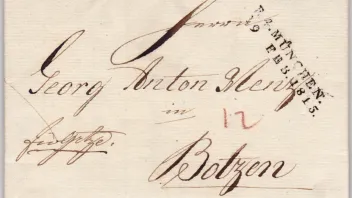 Herrn
R.2.MÜNCHEN.
9 FEB.1815.
Georg Anton Menz
in
12
Botzen